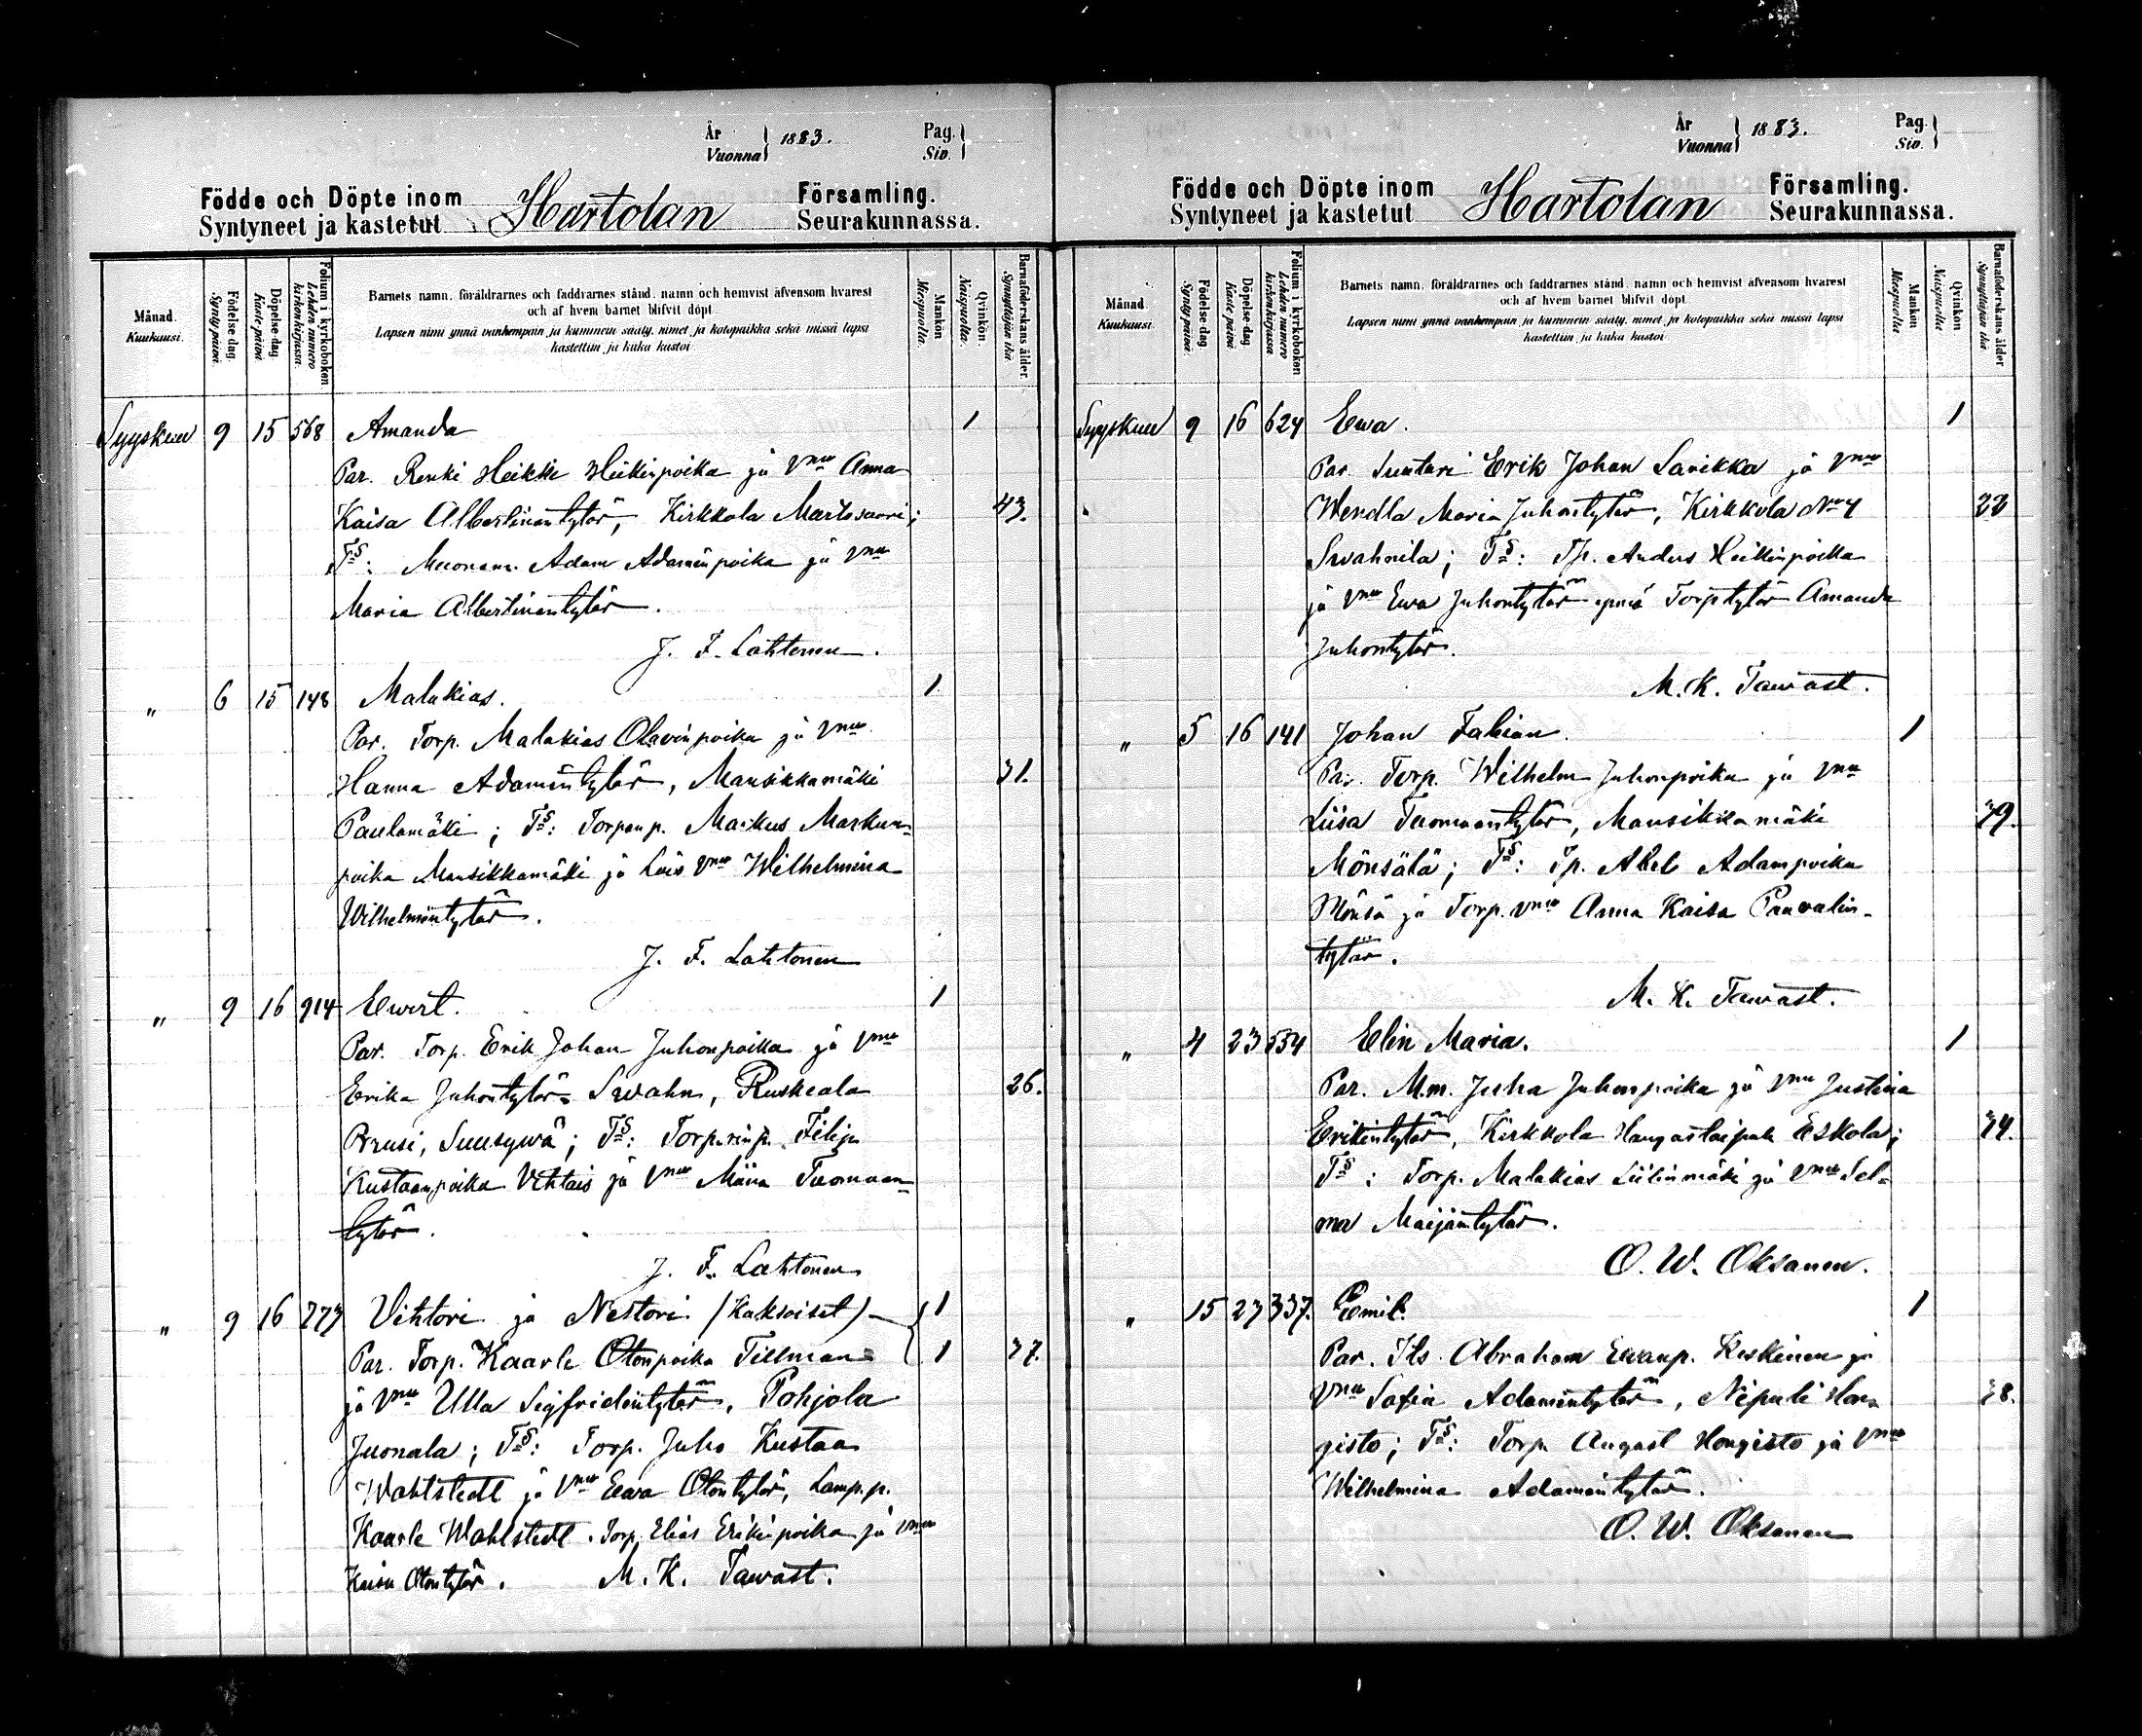 År
Vuonna } 1883.
Pag.
Siv. }
Födde och Döpte inom
Syntyneet ja kastetut
Hartolan
Församling.
Seurakunnassa.
Månad.
Kuukausi.
Födelse-dag.
Syntypäivä.
Döpelse-dag
Kaste-päivä
Folium i kyrkoboken
Lehden numero kirkonkirjassa.
Barnets namn, föräldrarnes och faddrarnes stånd, namn och hemvist äfvensom hvarest
och af hvem barnet blifvit döpt.
Lapsen nimi ynnä vanhempain ja kummein sääty, nimet ja kotopaikka sekä missä lapsi
kastettiin ja kuka kastoi.
Mankön
Miespuolta.
Qvinkön.
Naispuolta.
Barnaföderskans ålder.
Synnyttäjän ikä
Syyskuu 9 15 568 Amanda 1
Par. Renki Heikki Heikinpoika ja Vmo Anna
Kaisa Albertinantytär, Kirkkola Martosaari; 43.
Ts: Muonam. Adam Adaminpoika ja Vmo
Maria Albertinantytär.
J. F. Lahtonen.
„ 6 15 148 Malakias. 1
Par. Torp. Malakias Olavinpoika ja Vmo
Hanna Adamintytär, Mansikkamäki 31.
Paulamäki; Ts: Torpanp. Markus Markun-
poika Mansikkamäki ja Vmo Wilhelmina
Wilhelmintytär.
J. F. Lahtonen
„ 9 16 914 Ewert. 1
Par. Torp. Erik Johan Juhonpoika ja Vmo
Erika Juhontytär Swahn, Ruskeala 26.
Prusi, Suusywä; Ts: Filip
Kustaanpoika Vihtais ja Vmo Miina Tuomaan-
tytär.
J. F. Lahtonen
„ 9 16 773 Vihtori ja Nestori (Kaksoiset) 1
Par. Torp. Kaarle Otonpoika Tillman 1 37.
ja Vmo Ulla Sigfridintytär, Pohjola
Juonala; Ts: Torp. Juho Kustaa
Wahlstedt ja Vmo Eewa Otontytär, Lamp.p.
Kaarle Wahlstedt. Torp. Elias Erikinpoika ja Vmo
Kaisa Otontytär. M. K. Tawast.
År
Vuonna } 1883.
Pag.
Siv. }
Födde och Döpte inom
Syntyneet ja kastetut
Hartolan
Församling.
Seurakunnassa.
Månad.
Kuukausi.
Födelse-dag
Syntypäivä.
Döpelse-dag
Kaste-päivä
Folium i kyrkoboken
Lehden numero kirkonkirjassa
Barnets namn, föräldrarnes och faddrarnes stånd, namn och hemvist äfvensom hvarest
och af hvem barnet blifvit döpt.
Lapsen nimi ynnä vanhempain ja kummein sääty, nimet ja kotopaikka sekä missä lapsi
kastettiin ja kuka kastoi
Mankön
Miespuolta
Qvinkön.
Naispuolta
Barnaföderskans ålder
Synnyttäjän ikä
Syyskuu 9 16 624 Ewa. 1
Par. Suutari Erik Johan Larikka ja Vmo
Wendla Maria Juhontytär, Kirkkola No 4 22
Swahnila; Ts: Tp. Anders Heikinpoika
ja Vmo Ewa Juhontytär ynnä Torp.tytär Amanda
Juhontytär.
M. K. Tawast.
„ 5 16 141 Johan Fabian. 1
Par. Torp. Wilhelm Juhonpoika ja Vmo
Liisa Tuomaantytär, Mansikkamäki 39.
Mönsälä; Ts: Tp. Abel Adampoika
Mönsä ja Torp. Vmo Anna Kaisa Paavalin-
tytär.
M. K. Tawast.
„ 4 23 554 Elin Maria. 1
Par. M.m. Juha Juhonpoika ja Vmo Justina
Erikintytär, Kirkkola Hangastaipale Eskola; 34.
Ts: Torp. Malakias Liilinmäki ja Vmo Sel-
ma Maijantytär.
O. W. Oksanen.
„ 15 23 337. Eemil. 1
Par. Its. Abraham Ewanp. Keskinen ja
Vmo Sofia Adamintytär, Nipuli Hon- 38.
gisto; Ts: Torp. August Hongisto ja Vmo
Wilhelmina Adamintytär.
O. W. Oksanen